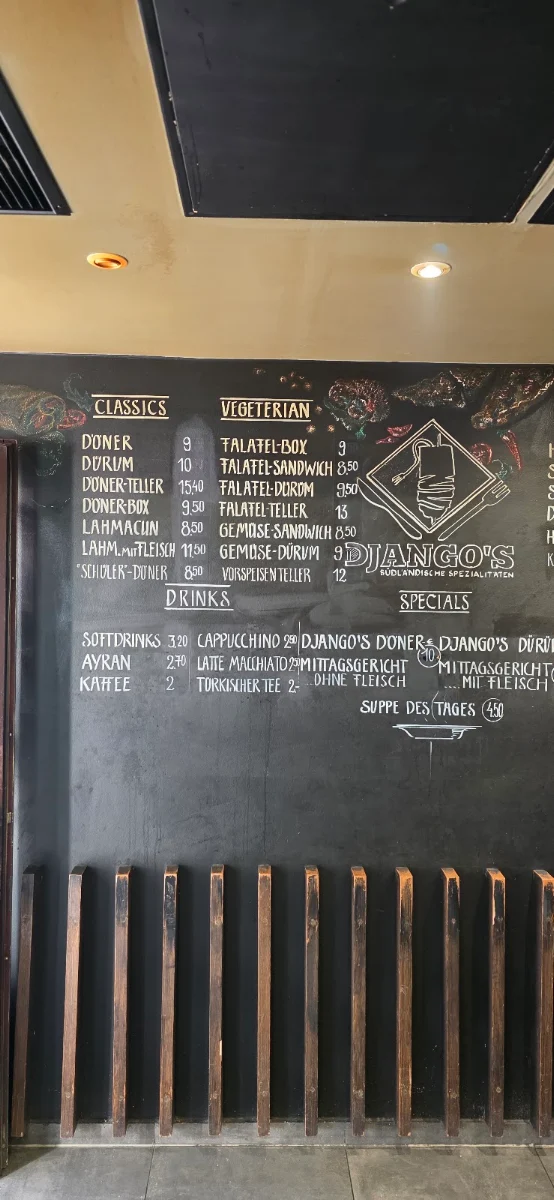 CLASSICS
DÖNER 9
DÜRÜM 10
DÖNER-TELLER 15,40
DÖNER-BOX 9,50
LAHMACUN 8,50
LAHM. MIT FLEISCH 11,50
"SCHÜLER"-DÖNER 8,50
VEGETERIAN
FALAFEL-BOX 9
FALAFEL-SANDWICH 8,50
FALAFEL-DÜRÜM 9,50
FALAFEL-TELLER 13
GEMÜSE-SANDWICH 8,50
GEMÜSE-DÜRÜM 9
VORSPEISENTELLER 12
DJANGO'S
SÜDLÄNDISCHE SPEZIALITÄTEN
DRINKS
SOFTDRINKS 3,20
AYRAN 2,70
KAFFEE 2
CAPPUCCINO 2,90
LATTE MACCHIATO
TÜRKISCHER TEE 2.-
SPECIALS
DJANGO'S DÖNER
MITTAGSGERICHT 10
...OHNE FLEISCH
DJANGO'S DÜRÜ
MITTAGSGERICHT
....MIT FLEISCH
SUPPE DES TAGES 4,50